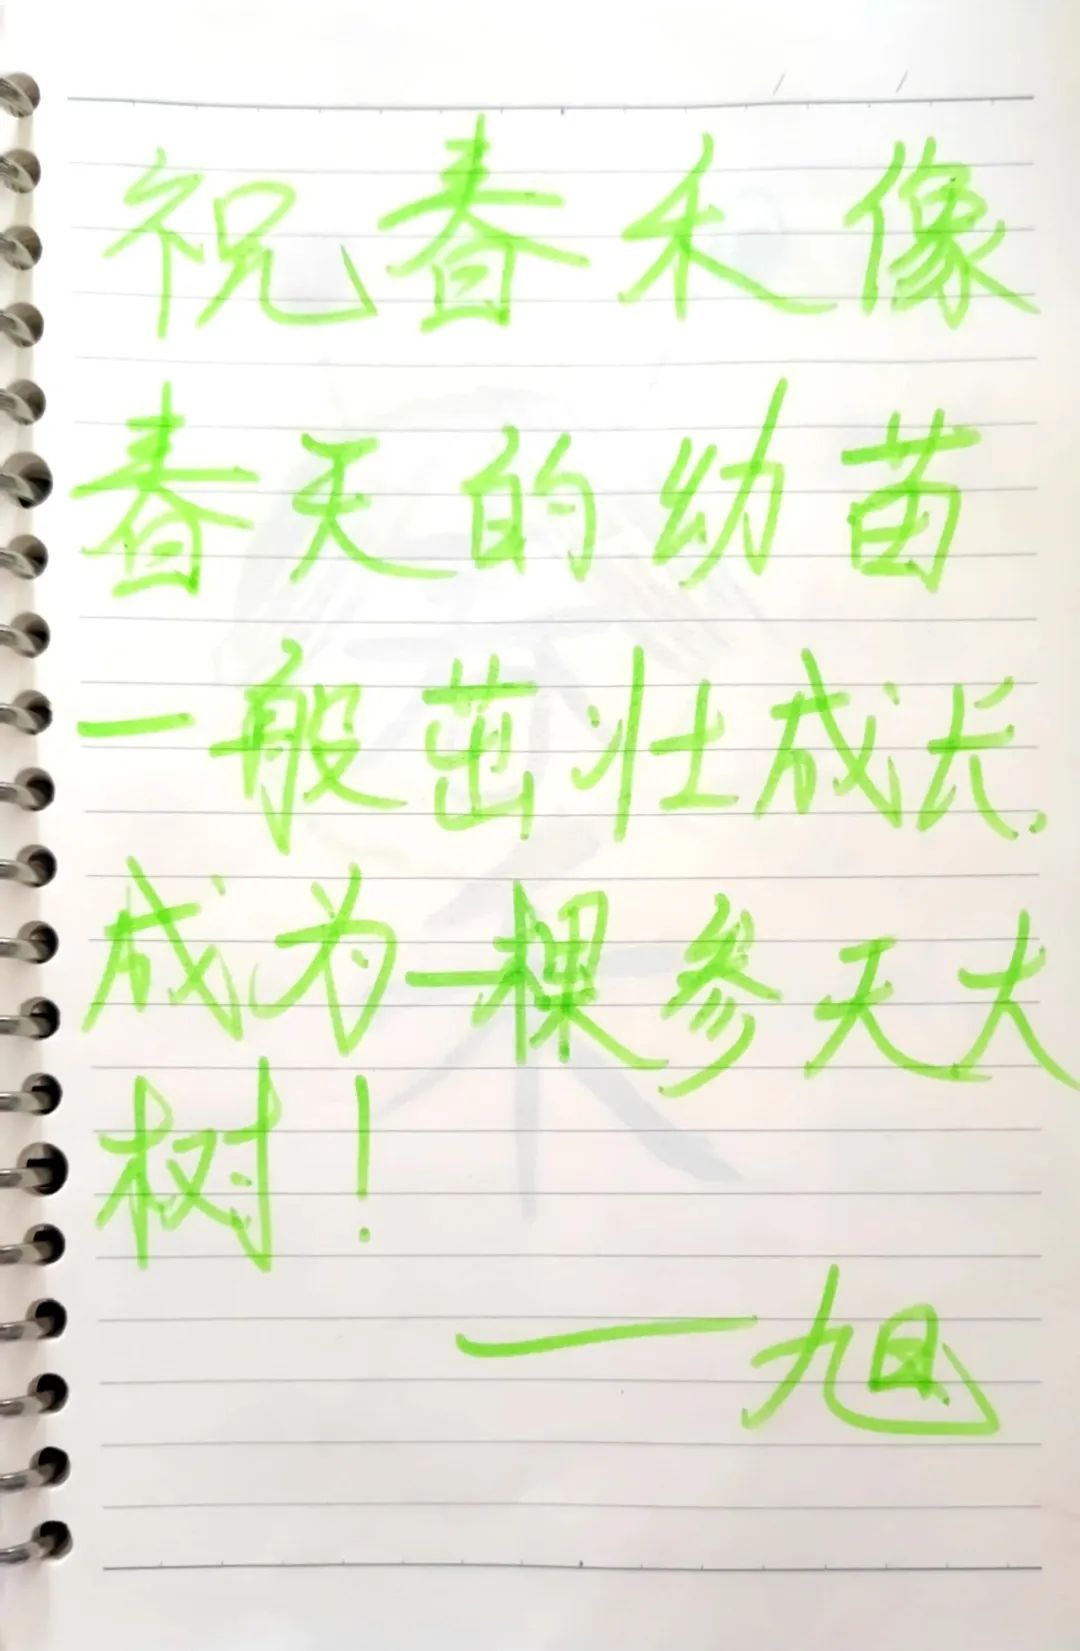 祝春禾像
春天的幼苗
一般茁壮成长.
成为一棵参天大
树！
——旭